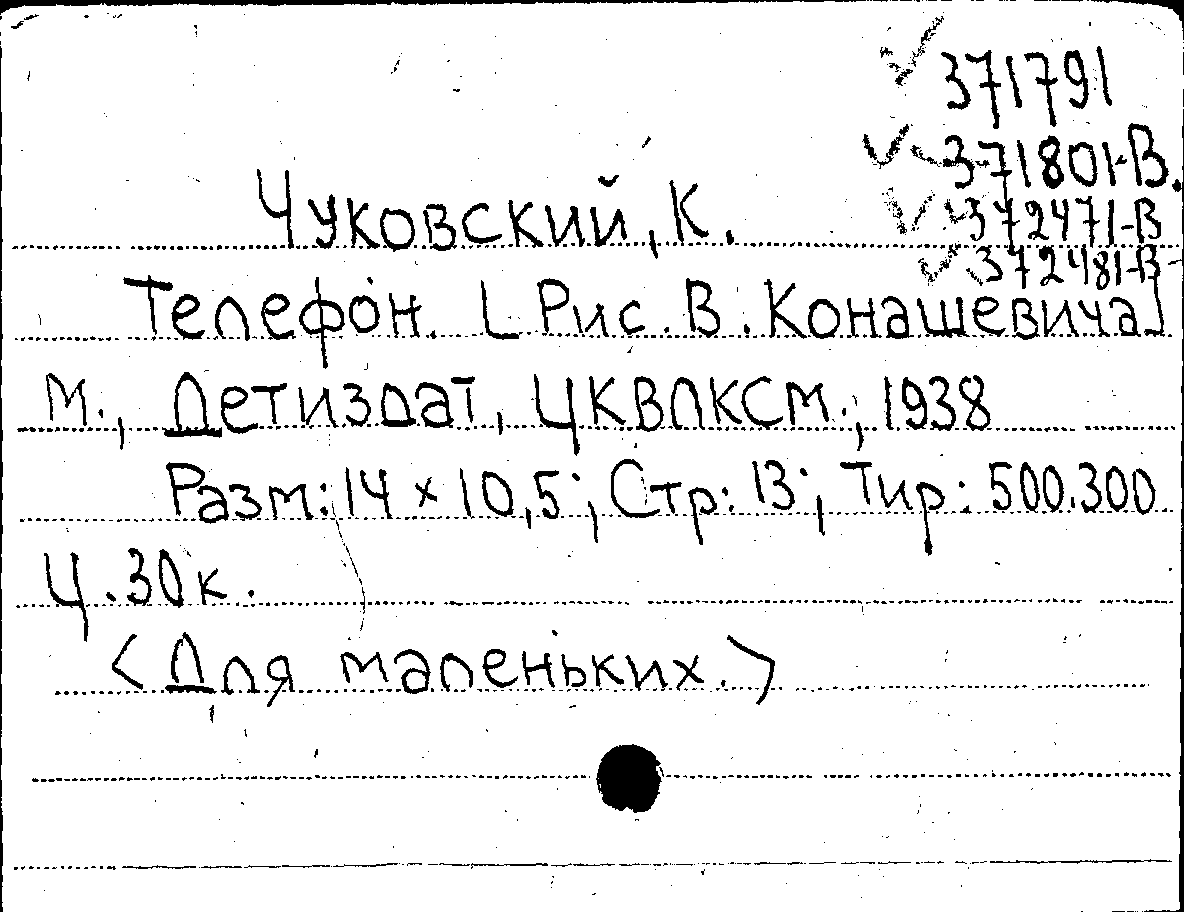 371791
371801-В.
Чуковский, К.
372471-В
372481-В
Телефон. [Рис. В. Конашевича]
М., Детиздат, ЦКВЛКСМ., 1938
Разм: 14 × 10,5; Стр: 13; Тир: 500.300
Ц. 30к.
<Для маленьких.>